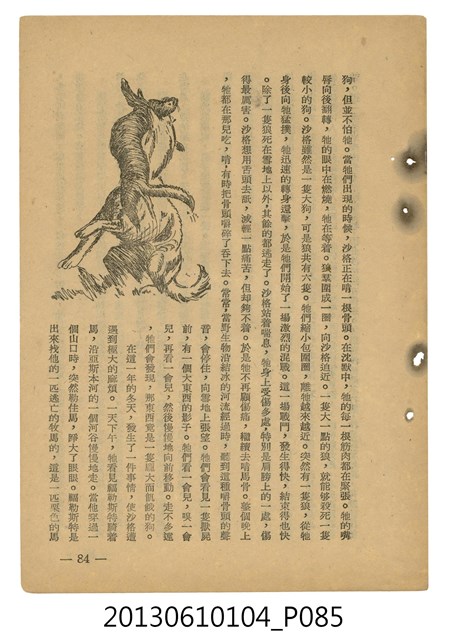 狗，但並不怕牠。當牠們出現的時候，沙格正在啃一根骨頭。在沈默中，牠的每一根筋肉都在緊張。牠的嘴
唇向後翻轉，牠的眼中在燃燒，牠在等着。狼羣圍成一圈，向沙格迫近。一隻大一點的狼，就能够殺死一隻
較小的狗。沙格雖然是一隻大狗，可是狼共有六隻。牠們縮小包圍圈，離牠越來越近。突然有一隻狼，從牠
身後向牠猛撲，牠迅速的轉身還擊，於是牠們開始了一場激烈的混戰。這一場戰鬥，發生得快，結束得也快
。除了一隻狼死在雪地上以外，其餘的都逃走了。沙格站着喘息，牠身上受傷多處，特別是肩膀上的一處，傷
得最厲害。沙格想用舌頭去舐，減輕一點痛苦，但却夠不着。於是牠不再顧傷痛，繼續去啃馬骨。整個晚上
，牠都在那兒吃，啃，有時把骨頭嚼碎了吞下去。常常，當野生物沿結冰的河流經過時，聽到這種嚼骨頭的聲
音，會停住，向雪地上張望。牠們會看見一隻獸屍
前，有一個大東西的影子。牠們看一會兒，嗅一會
兒，再看一會兒，然後慢慢地向前移動。走不多遠
，牠們會發現，那東西竟是一隻龐大而飢餓的狗。
在這一年的冬天，發生了一件事情，使沙格遭
遇到極大的麻煩。一天下午，牠看見貓勒斯特騎着
馬，沿亞斯本河的一個河谷慢慢地走。當他穿過一
個山口時，突然勒住馬，睜大了眼睛。貓勒斯特是
出來找他的一匹逃亡的牧馬的，這是一匹栗色的馬
— 84 —
20130610104_P085